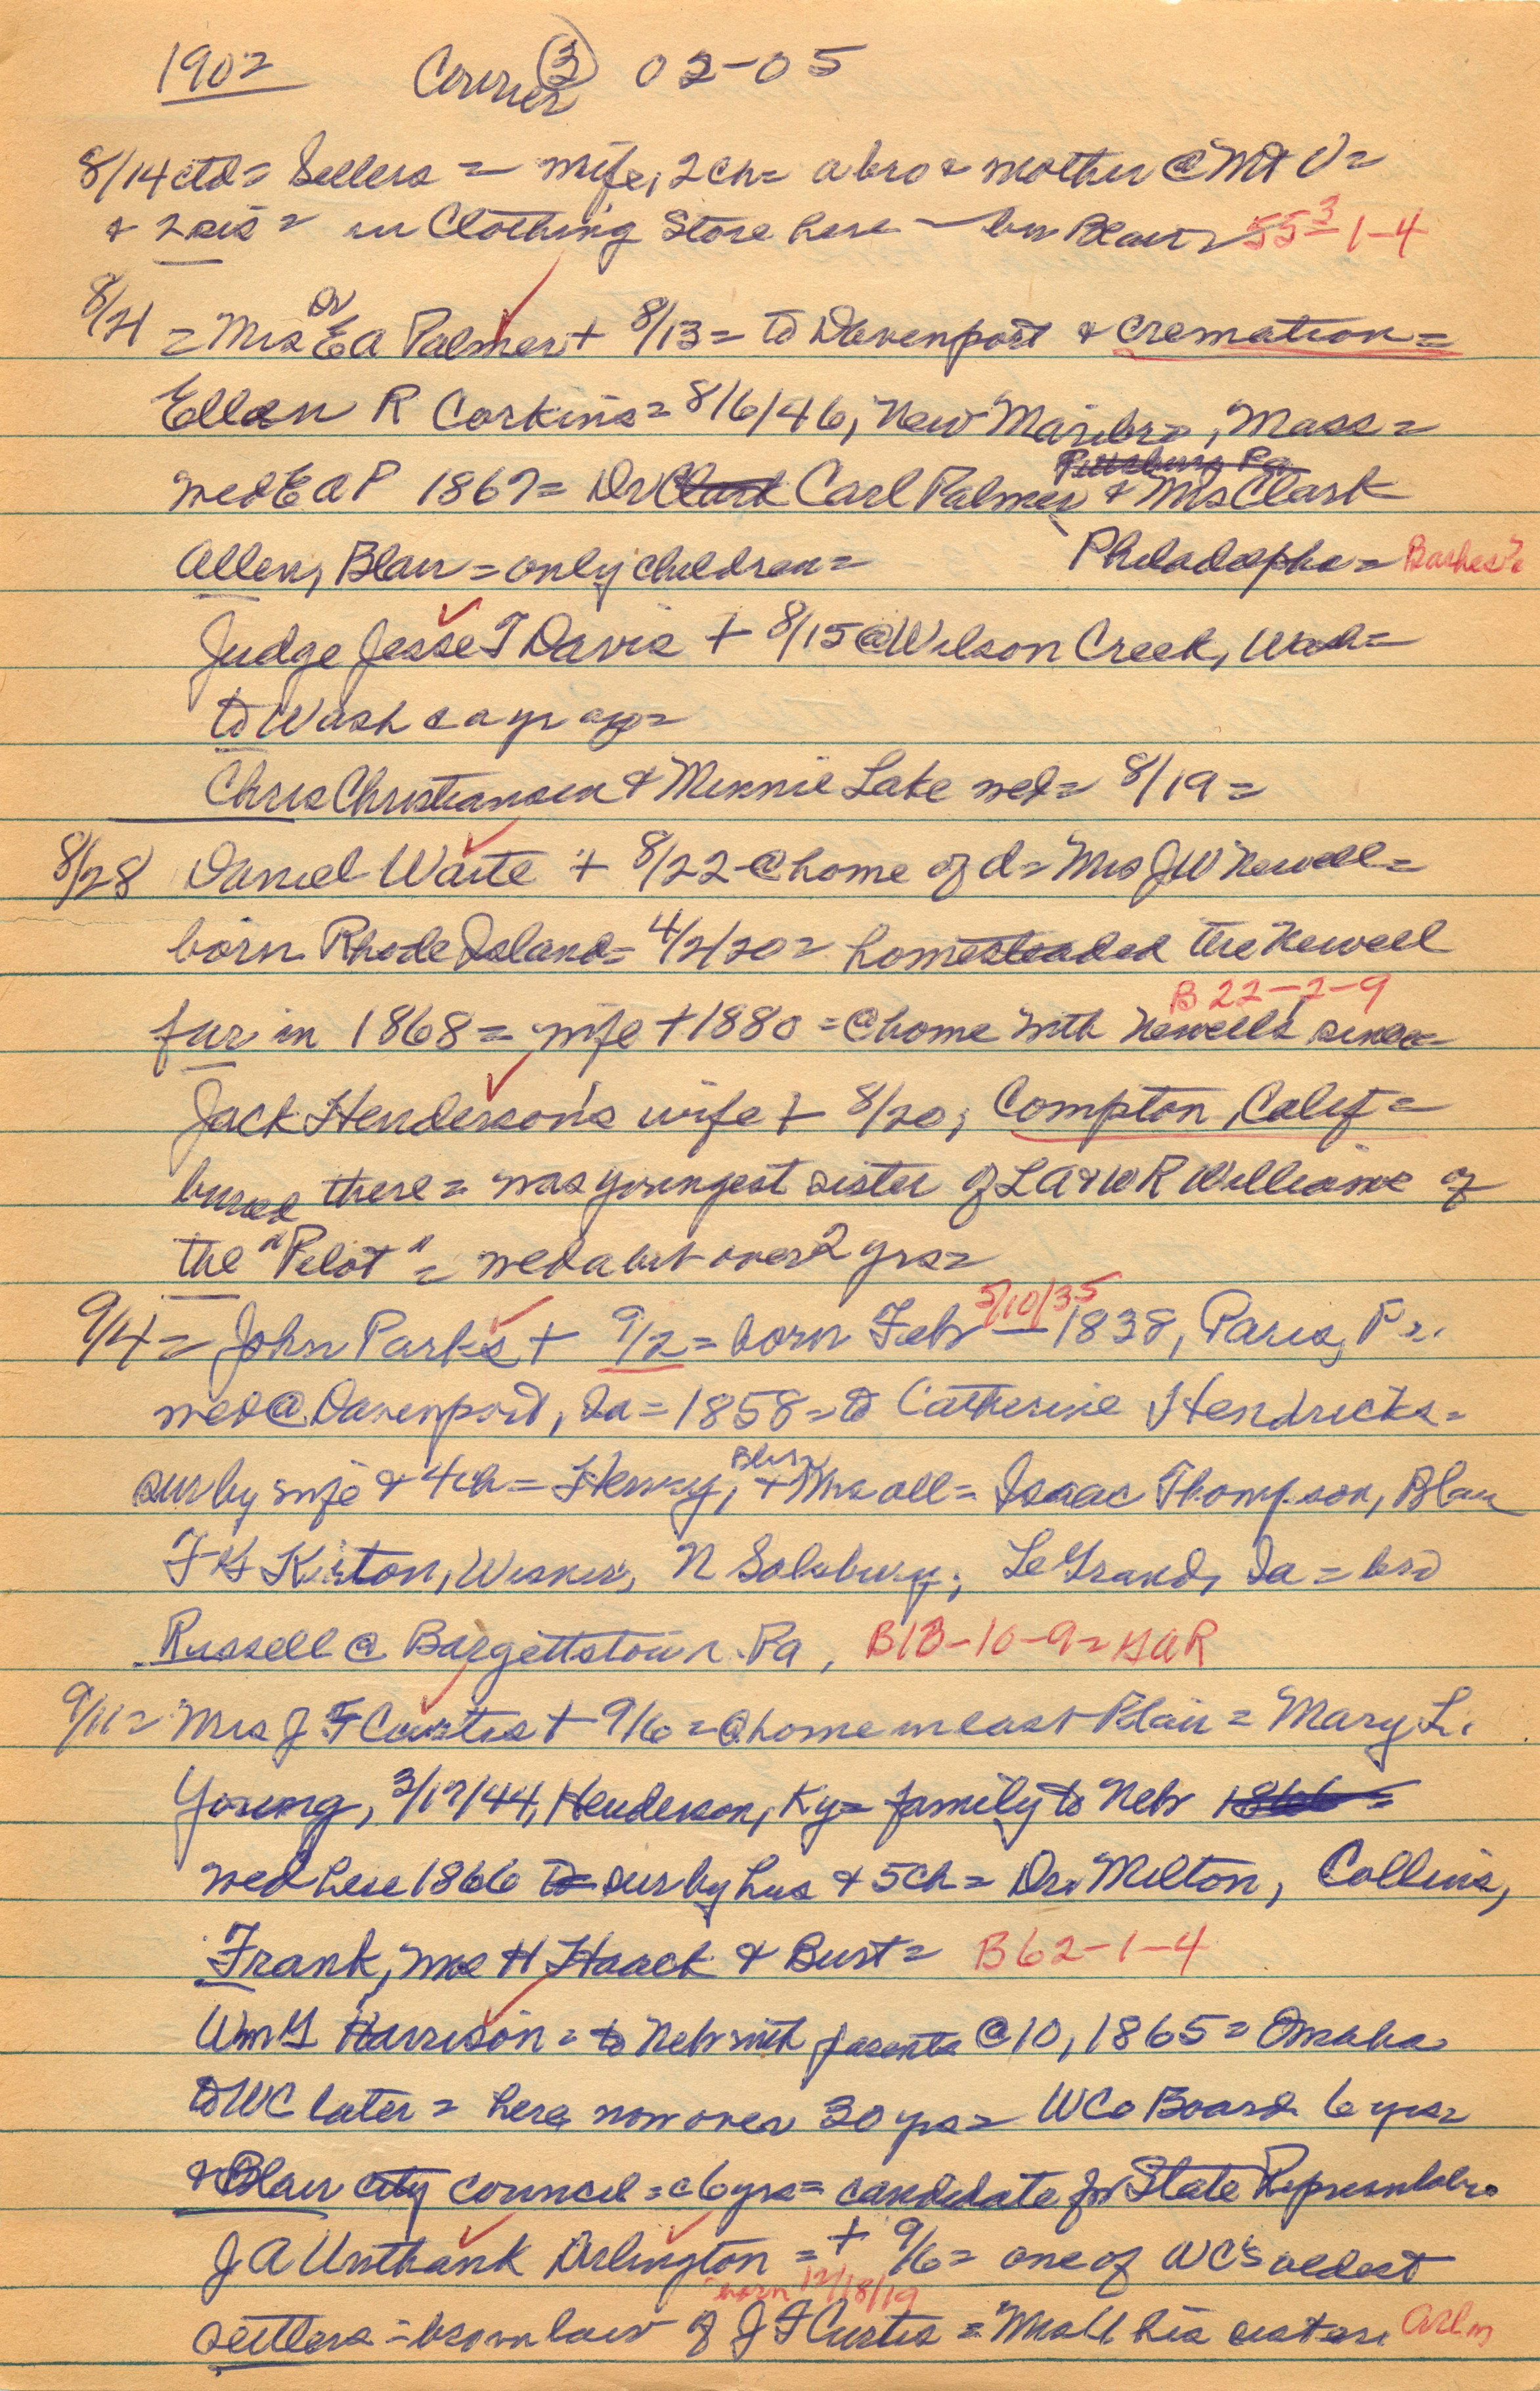 1902 Courier (3) 02-05
8/14 ctd= Sellers = wife, 2 ch= a bro & mother @ Mt V=
& 2 sis = in Clothing Store here - bu Blair= 55 3 1-4
8/21 = Mrs Dr E A Palmer + 8/13= to Davenport & cremation=
Ellen R Corkins= 8/6/46, New Marlbr=, Mass=
wed E A P 1867= Dr Clark Carl Palmer Pittsburg Pa & Mrs Clark
Allen, Blair = only children= Philadelpha=
Judge Jesse T Davis + 8/15 @ Wilson Creek, Wash=
to Wash c a yr ago=
Chris Christiansen & Minnie Lake wed= 8/19=
8/28 Daniel Waite + 8/22 @ home of d= Mrs J W Newell=
born Rhode Island= 4/2/20= homesteaded the Newell
B 22-2-9
far in 1868= wife + 1880 = @ home with Newells since=
Jack Henderson's wife + 8/20, Compton, Calif=
buried there= was youngest sister of L A & W R Williams of
the "Pilot" = wed a bit over 2 yrs=
9/4= John Parks + 9/2= born Feb 5/10/35 - 1838, Paris, Pa.
wed @ Davenport, Ia= 1858= to Catherine Hendricks=
sur by wife & 4 ch= Henry, Blair, + Mrs all= Isaac Thompson, Blair
F H Kiston, Wisner, N Solsbury, Le Grand, Ia = bro
Russell @ Burgettstown Pa, B 13-10-9= GAR
9/11= Mrs J F Curtis + 9/6= @ home in east Blair = Mary L.
Young, 3/17/44, Henderson, Ky= family to Nebr 1866=
wed here 1866 to sur by hus & 5 ch= Dr. Milton, Collins,
Frank, Mrs H Haack & Burt= B 62-1-4
Wm G Harrison = to Nebr with parents @ 10, 1865= Omaha
to WC later = here now over 30 yrs= W Co Board 6 yrs=
& Blair city council = c 6 yrs= candidate for State Representative
J A Unthank Arlington = + 9/6= one of WC's oldest
born 12/18/19
settlers = bro in law of J F Curtis = Mrs U his sister. Arlin